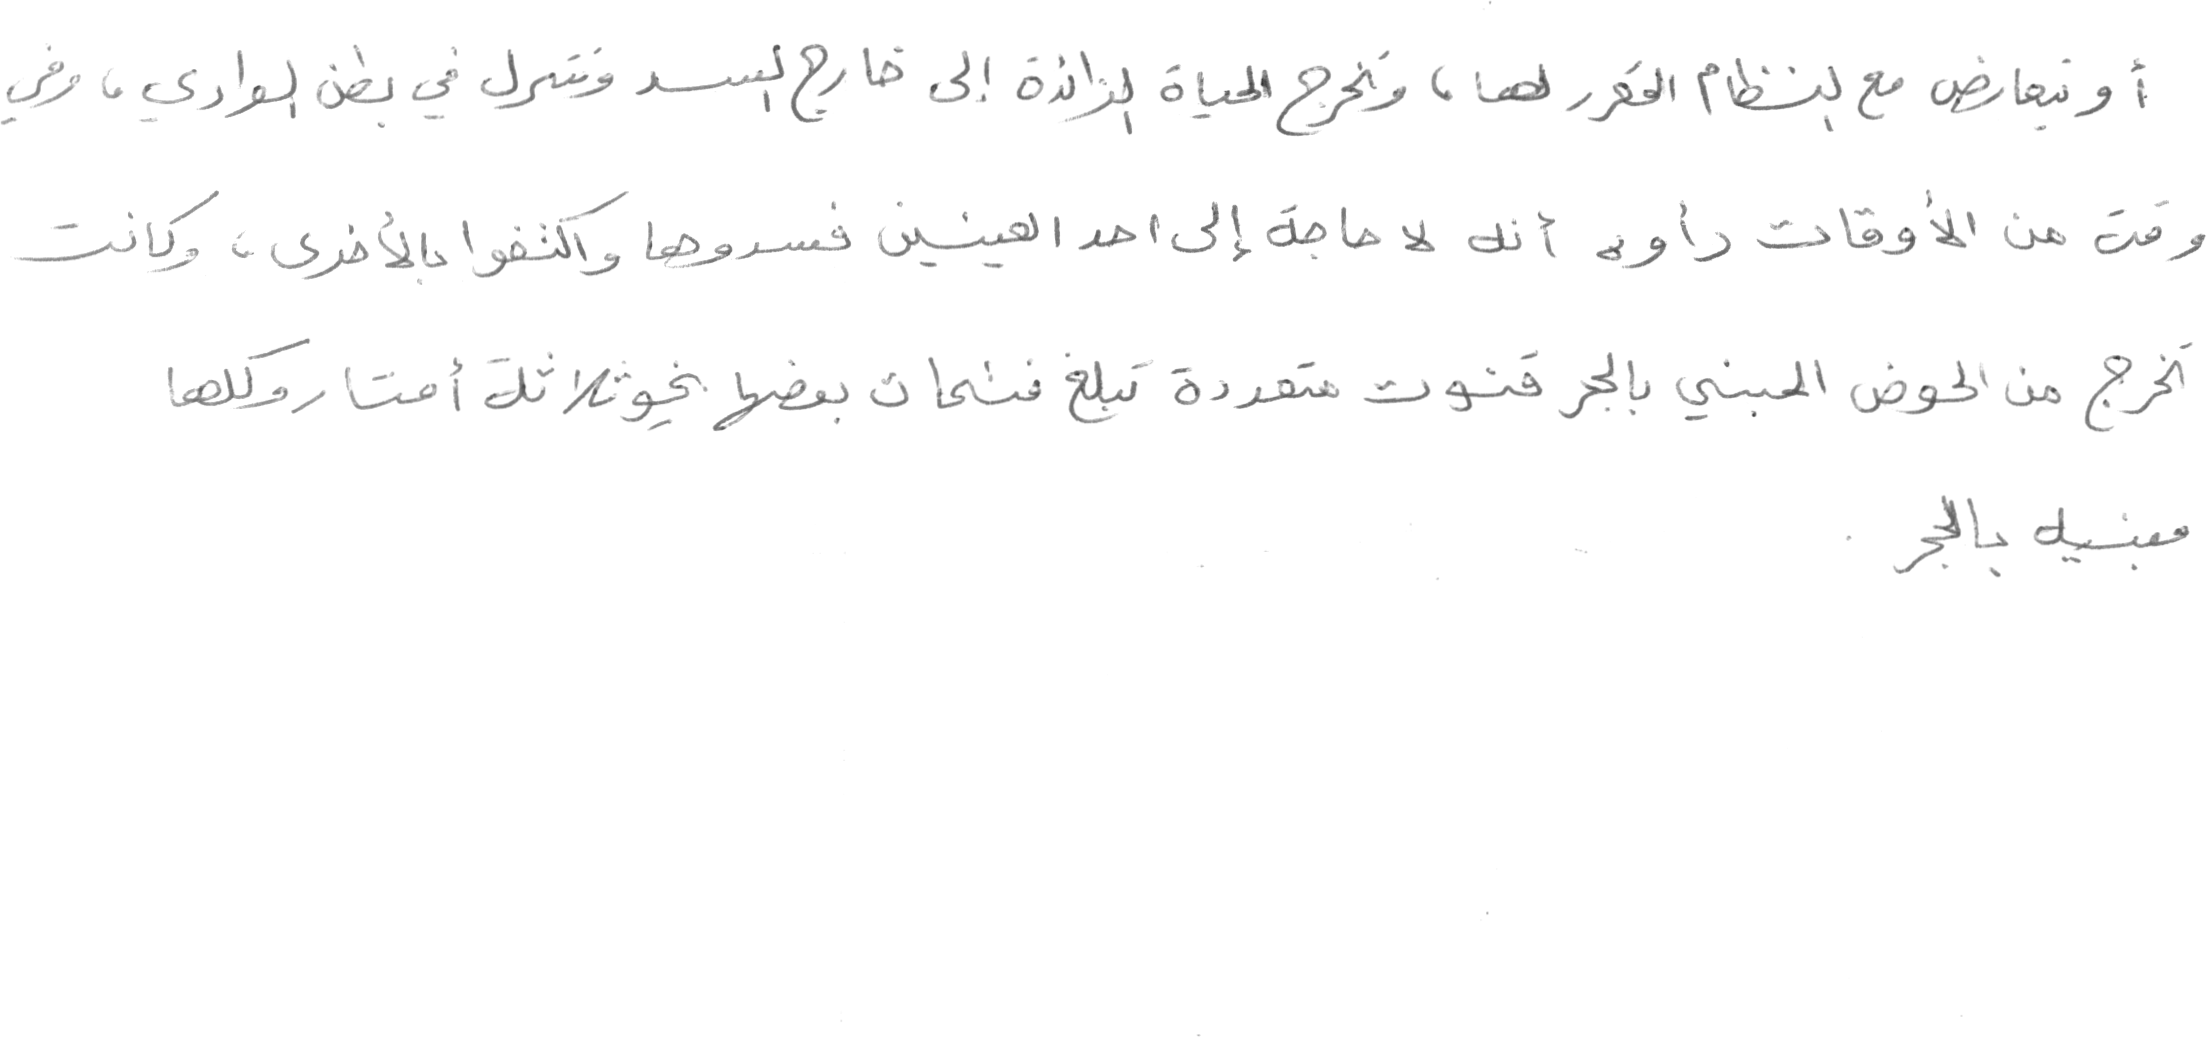 أو تتعارض مع النظام المقرر لها، وتخرج المياة الزائدة إلى خارج السد وتنزل في بطن الوادي، وفي
وقت من الأوقات رأوه أنه لا حاجة إلى احد العينين فسدوها واكتفوا بالأخرى، وكانت
تخرج من الحوض المبني بالحجر قنوت متعددة تبلغ فتحات بعضها نحو ثلاثة أمتار وكلها
مبنيه بالحجر